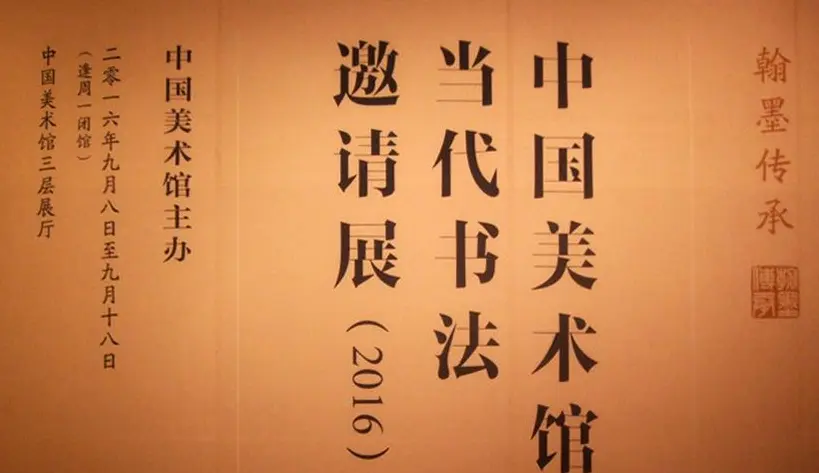 翰墨传承
中国美术馆
当代书法
邀请展(2016)
中国美术馆主办
二零一六年九月八日至九月十八日
(逢周一闭馆)
中国美术馆三层展厅